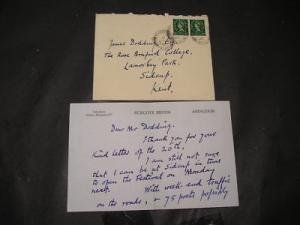 James Dodding, Esq.
The Rose Bruford College,
Lamorbey Park,
Sidcup,
Kent.
BURCOTE BROOK
ABINGDON
Dear Mr Dodding,
I thank you for your
kind letter of the 20th.
I am still not sure
that I can be at Sidcup in time
to open the Festival on Monday
next.
With week-end traffic
on the roads, &
75 posts